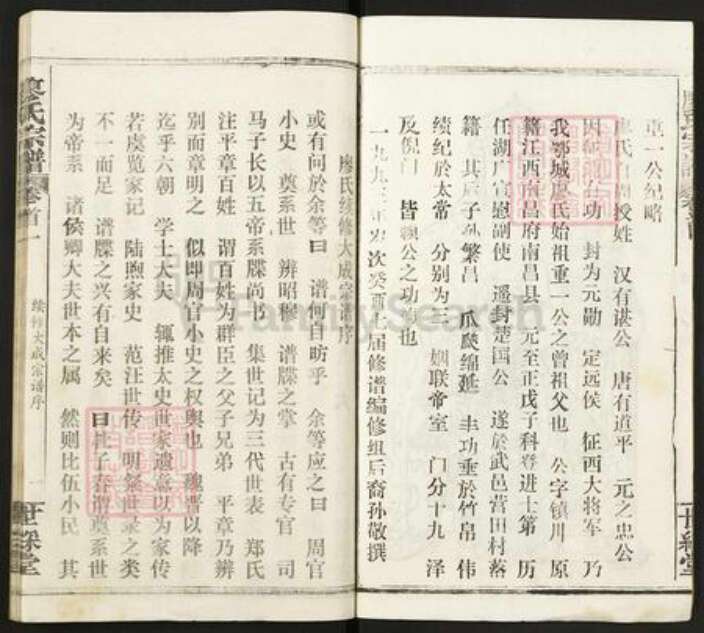 重一公纪略
廖氏自周授姓 汉有谌公 唐有道平 元之忠公
因 功 封为元勋 定远侯 征西大将军 乃
我鄂城廖氏始祖重一公之曾祖父也 公字镇川 原
籍江西南昌府南昌县 元至正戊子科登进士第 历
任湖广宣慰副使 遥封楚国公 遂於武邑营田村落
籍 其后子孙繁昌 瓜瓞绵延 丰功垂於竹帛 伟
绩纪於太常 分别为三 姻联帝室 门分十九 泽
及 门 皆 公之功 也
一九九三年岁次癸酉七届修谱编修组后裔孙敬撰
世綵堂
廖氏续修大成宗谱序
或有问於余等曰 谱何自昉乎 余等应之曰 周官
小史 奠系世 辨昭穆 谱牒之掌 古有专官 司
马子长以五帝系牒尚书 集世记为三代世表 郑氏
注平章百姓 谓百姓为群臣之父子兄弟 平章乃辨
别而章明之 似即周官小史之权舆也 魏晋以降
迄乎六朝 学士大夫 辄推太史世家遗意以为家传
若虞览家记 陆煦家史 范汪世传 明粲世录之类
不一而足 谱牒之兴有自来矣 曰杜子春谓奠系世
为帝系 诸侯卿大夫世本之属 然则比伍小民 其
廖氏宗谱 卷首一
续修大成宗谱序
一
世綵堂
FamilySearch